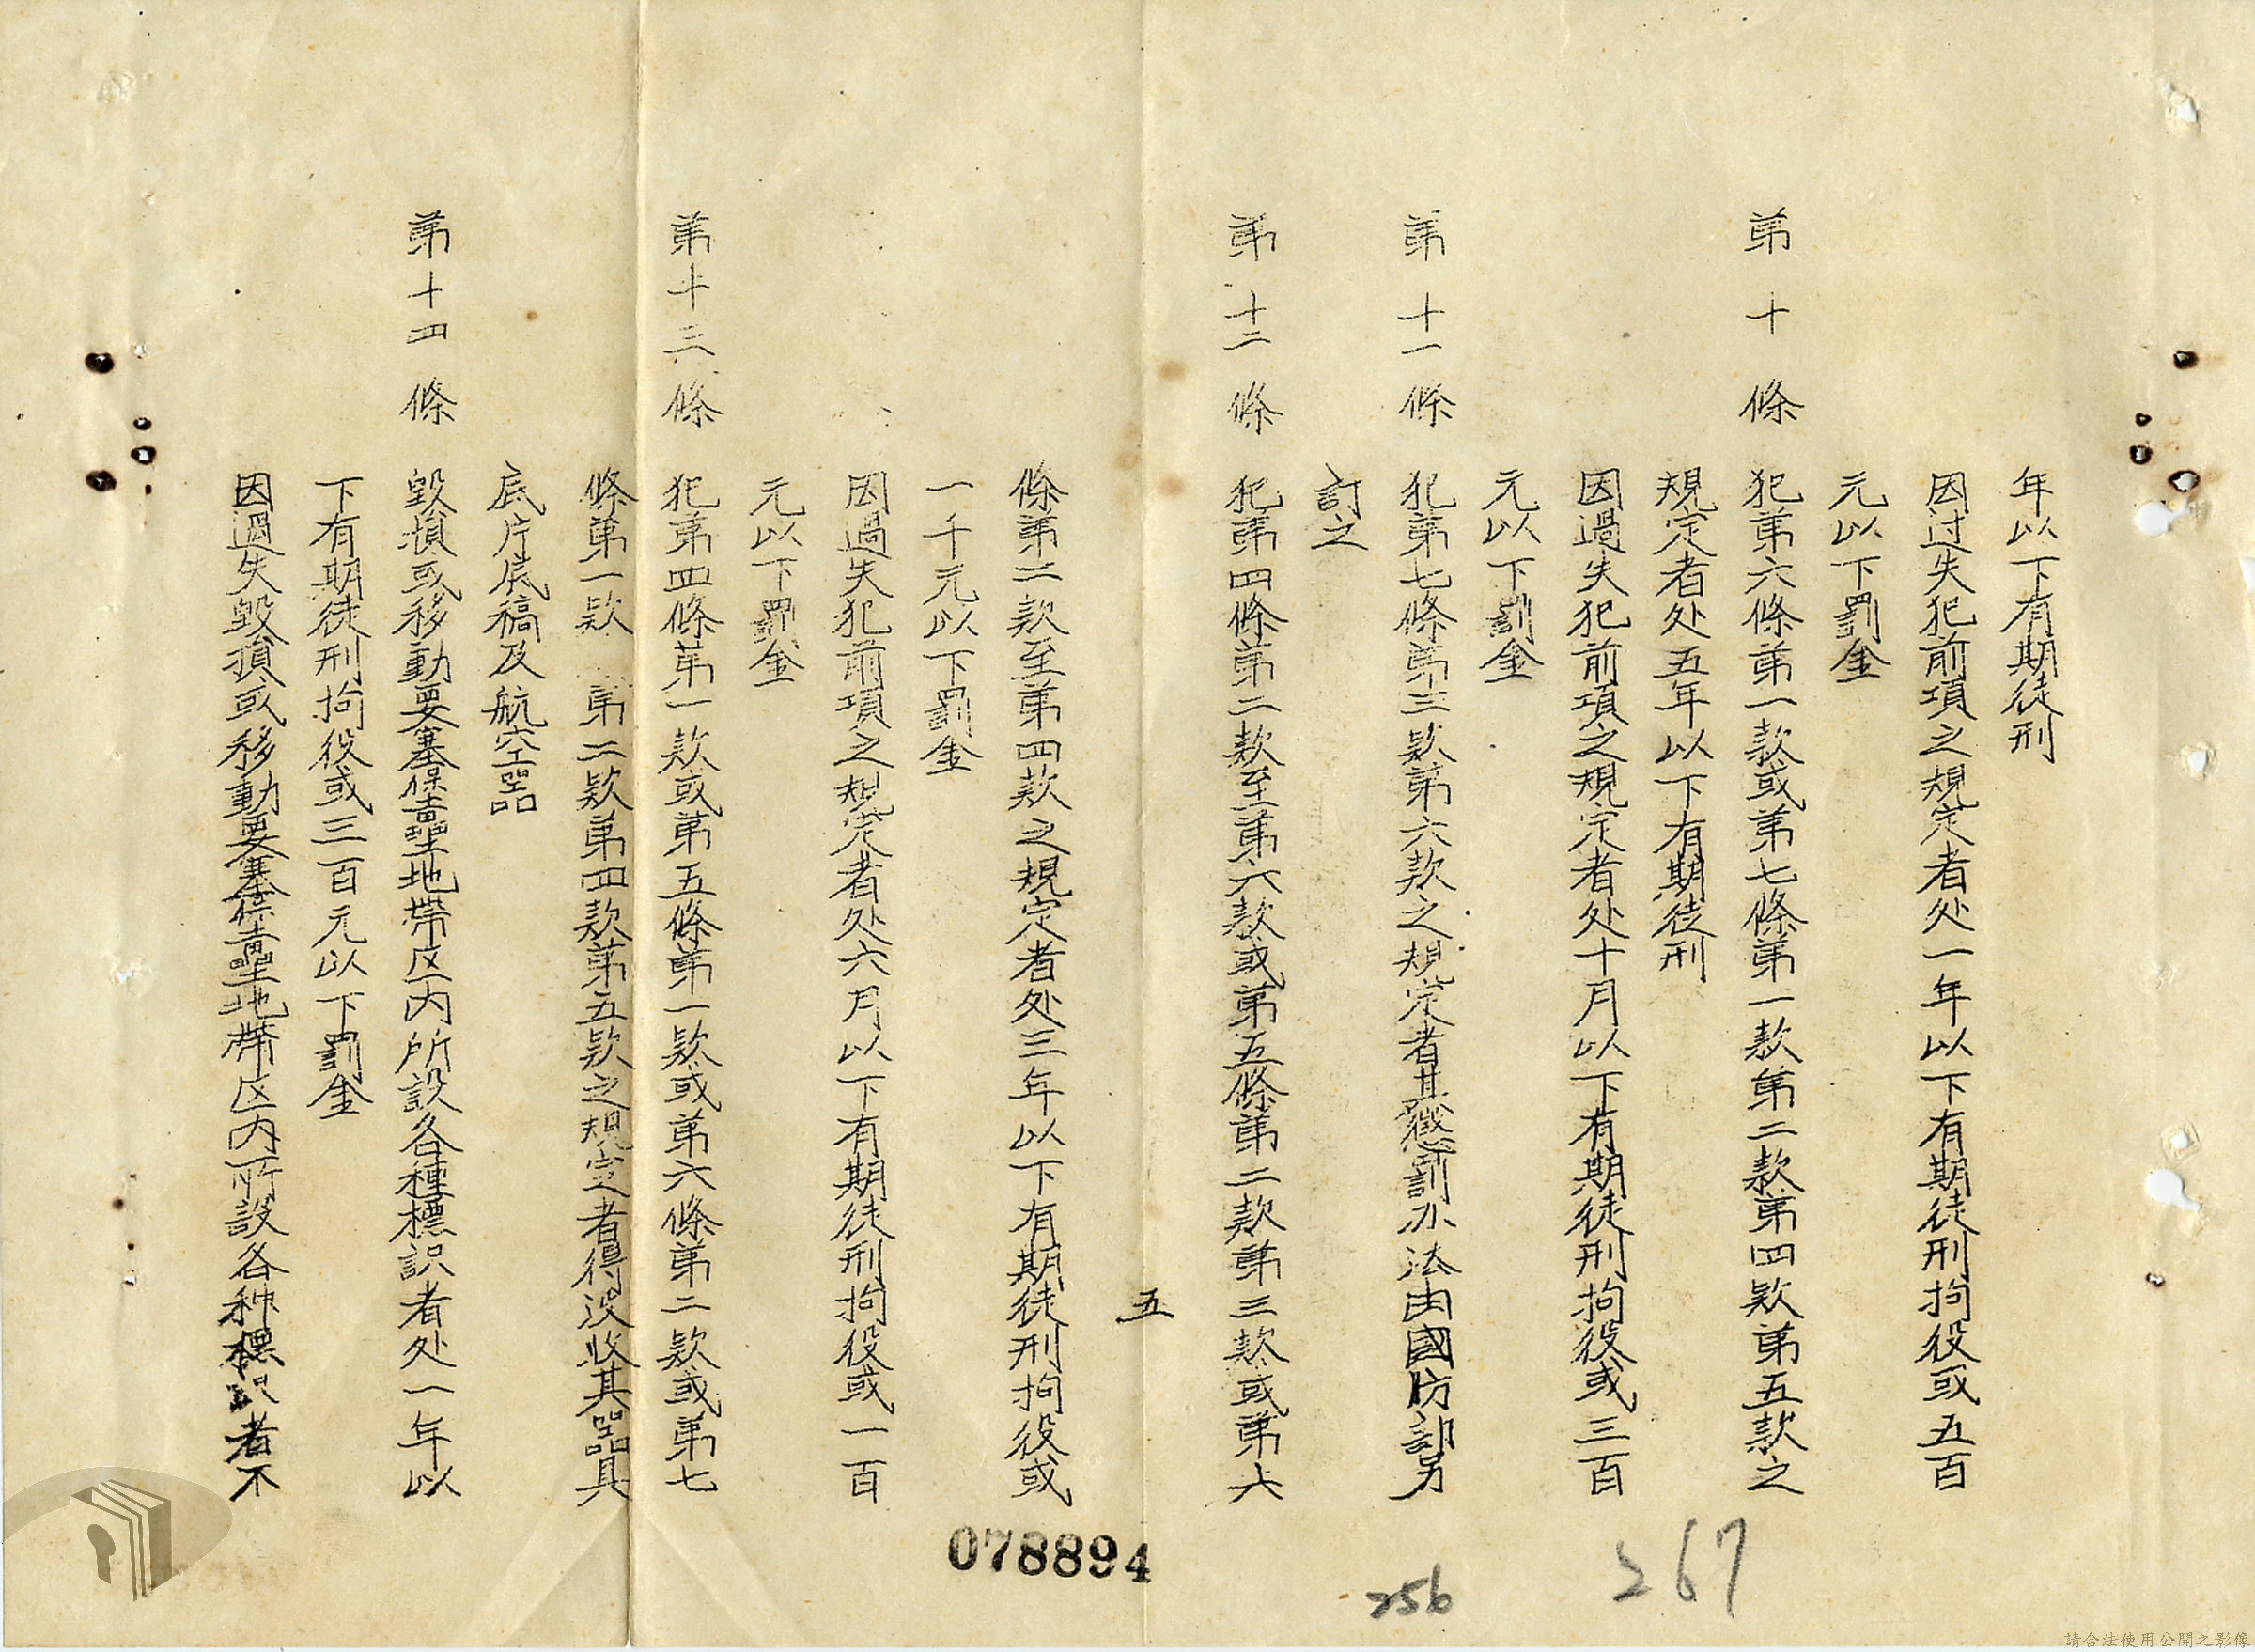 年以下有期徒刑
因过失犯前項之規定者处一年以下有期徒刑拘役或五百
元以下罰金
第十條 犯第六條第一款或第七條第一款第二款第四款第五款之
規定者处五年以下有期徒刑
因過失犯前項之規定者处十月以下有期徒刑拘役或三百
元以下罰金
第十一條 犯第七條第三款第六款之規定者其懲罰办法由國防部另
訂之
第十二條 犯第四條第二款至第六款或第五條第二款第三款或第六
五
條第二款至第四款之規定者处三年以下有期徒刑拘役或
一千元以下罰金
因過失犯前項之規定者处六月以下有期徒刑拘役或一百
元以下罰金
第十三條 犯第四條第一款或第五條第一款或第六條第二款或第七
條第一款 第二款第四款第五款之規定者得没收其器具
底片底稿及航空器
第十四條 毀損或移動要塞堡壘地帶区内所設各種標識者处一年以
下有期徒刑拘役或三百元以下罰金
因過失毀損或移動要塞堡壘地帶区内所設各种標识者不
078894
256
267
請合法使用公開之影像